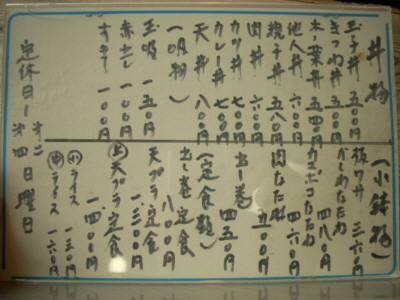 丼物
玉子丼 五〇〇円
きつね丼 五〇〇円
木の葉丼 五四〇円
他人丼 六〇〇円
親子丼 五八〇円
肉丼 六〇〇円
カツ丼 七〇〇円
カレー丼 七〇〇円
天丼 八〇〇円
一品物)
玉吸 一五〇円
赤出し 一〇〇円
一〇〇円
定休日ー第二
第四日曜日
(小鉢物)
板ワサ 三六〇円
かしわなたね 四八〇円
カマボコなたね 四六〇円
肉なたね 五〇〇円
出し巻 四五〇円
(定食類)
出し巻定食 八〇〇円
天プラ定食 一三〇〇円
上天プラ定食 一四〇〇円
小ライス 一三〇円
中ライス 一六〇円